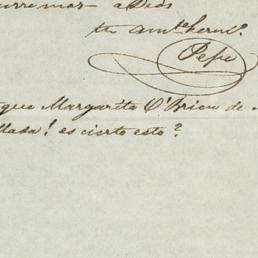 urremar - aDios
tu amte hermo.
Pepe
que Margarita O'Brien de
llada! es cierto esto?